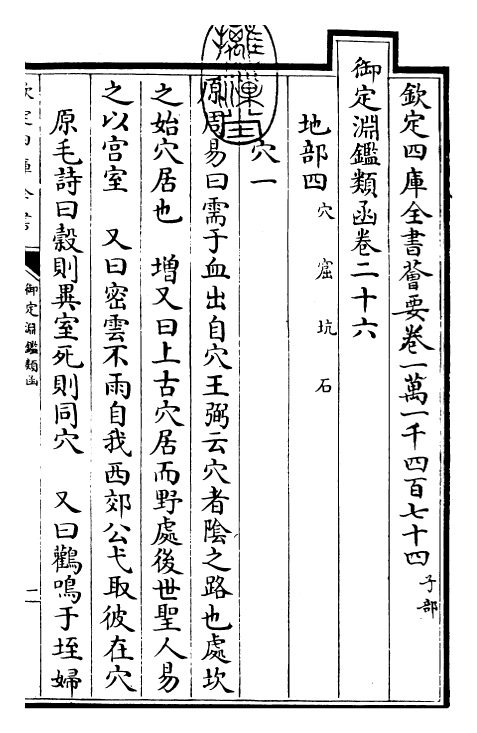 欽定四庫全書薈要卷一萬一千四百七十四 子部
御定淵鑑類函卷二十六
地部四 穴 窟 坑 石
穴一
原周易曰需于血出自穴王弼云穴者陰之路也處坎
之始穴居也 增又曰上古穴居而野處後世聖人易
之以宫室 又曰密雲不雨自我西郊公弋取彼在穴
原毛詩曰榖則異室死則同穴 又曰鸛鳴于垤婦
欽定四庫全書
御定淵鑑類函
一